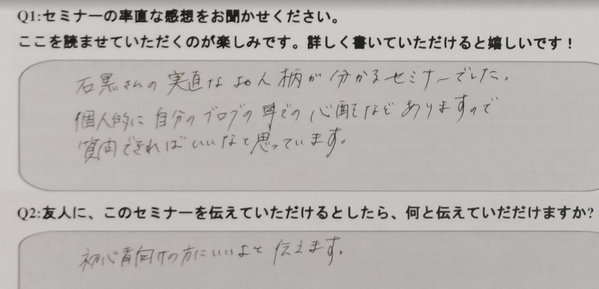 Q1:セミナーの率直な感想をお聞かせください。
ここを読ませていただくのが楽しみです。詳しく書いていただけると嬉しいです！
石黒さんの実直なお人柄が分かるセミナーでした。
個人的に自分のブログの事での心配などありますので
質問できればいいなと思っています。
Q2:友人に、このセミナーを伝えていただけるとしたら、何と伝えていだだけますか?
初心者向けの方にいいよと伝えます。